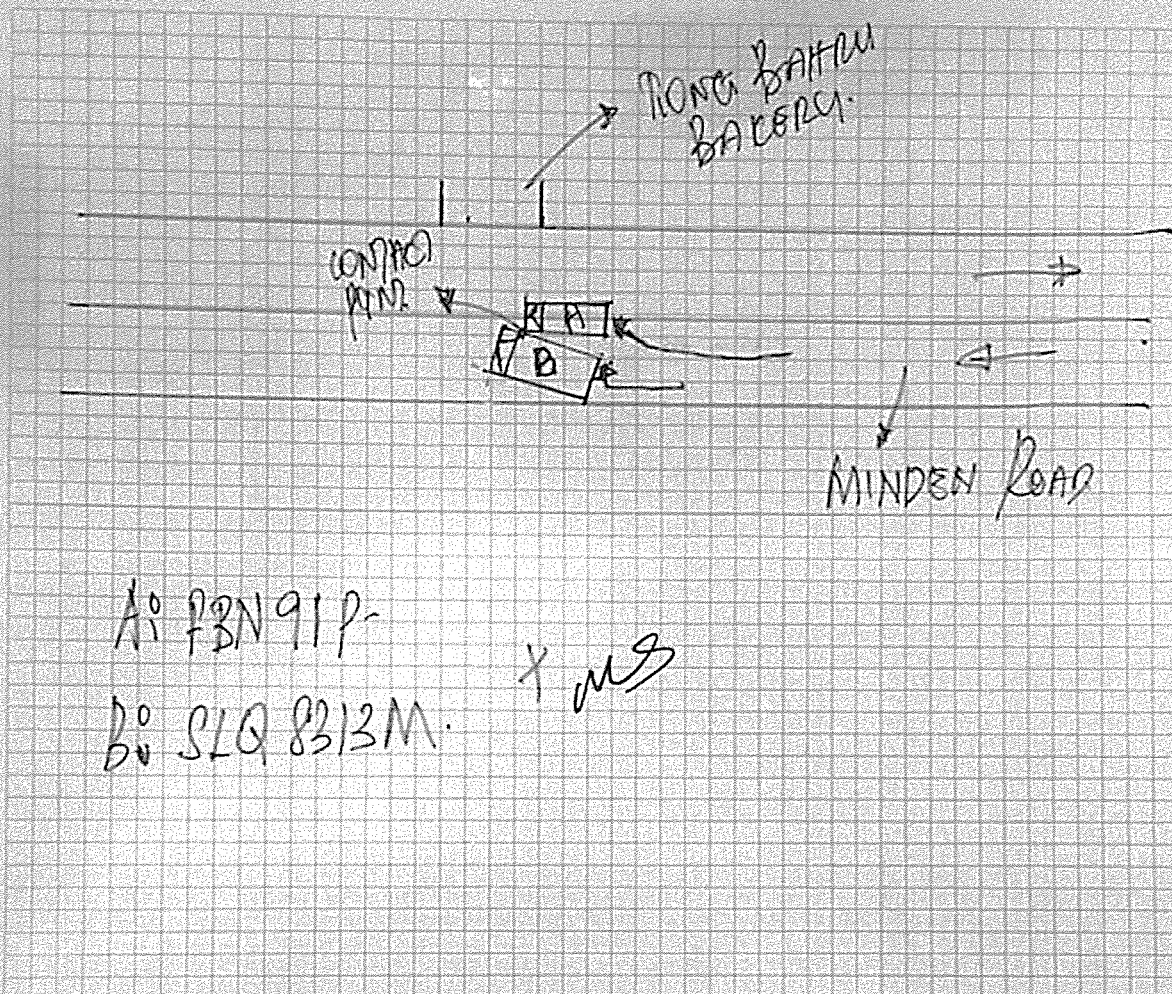 TIONG BAHRU
BAKERY.
CONTACT
POINT
A
B
MINDEN ROAD
A: FBN 91P-
B: SLQ 8313M.
X